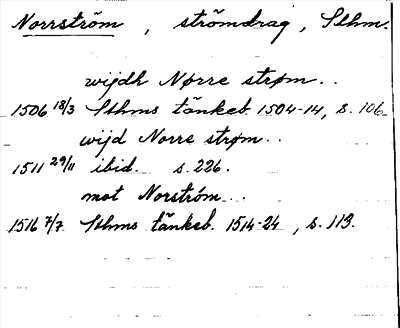 Norrström, strömdrag, Sthm.
wijdh Nørre strøm..
1506 18/3 Sthms tänkeb. 1504-14, s. 106
wijd Norre strøm..
1511 29/11 ibid. s. 226.
mot Norström..
1516 7/7 Sthms tänkeb. 1514-24, s. 113.